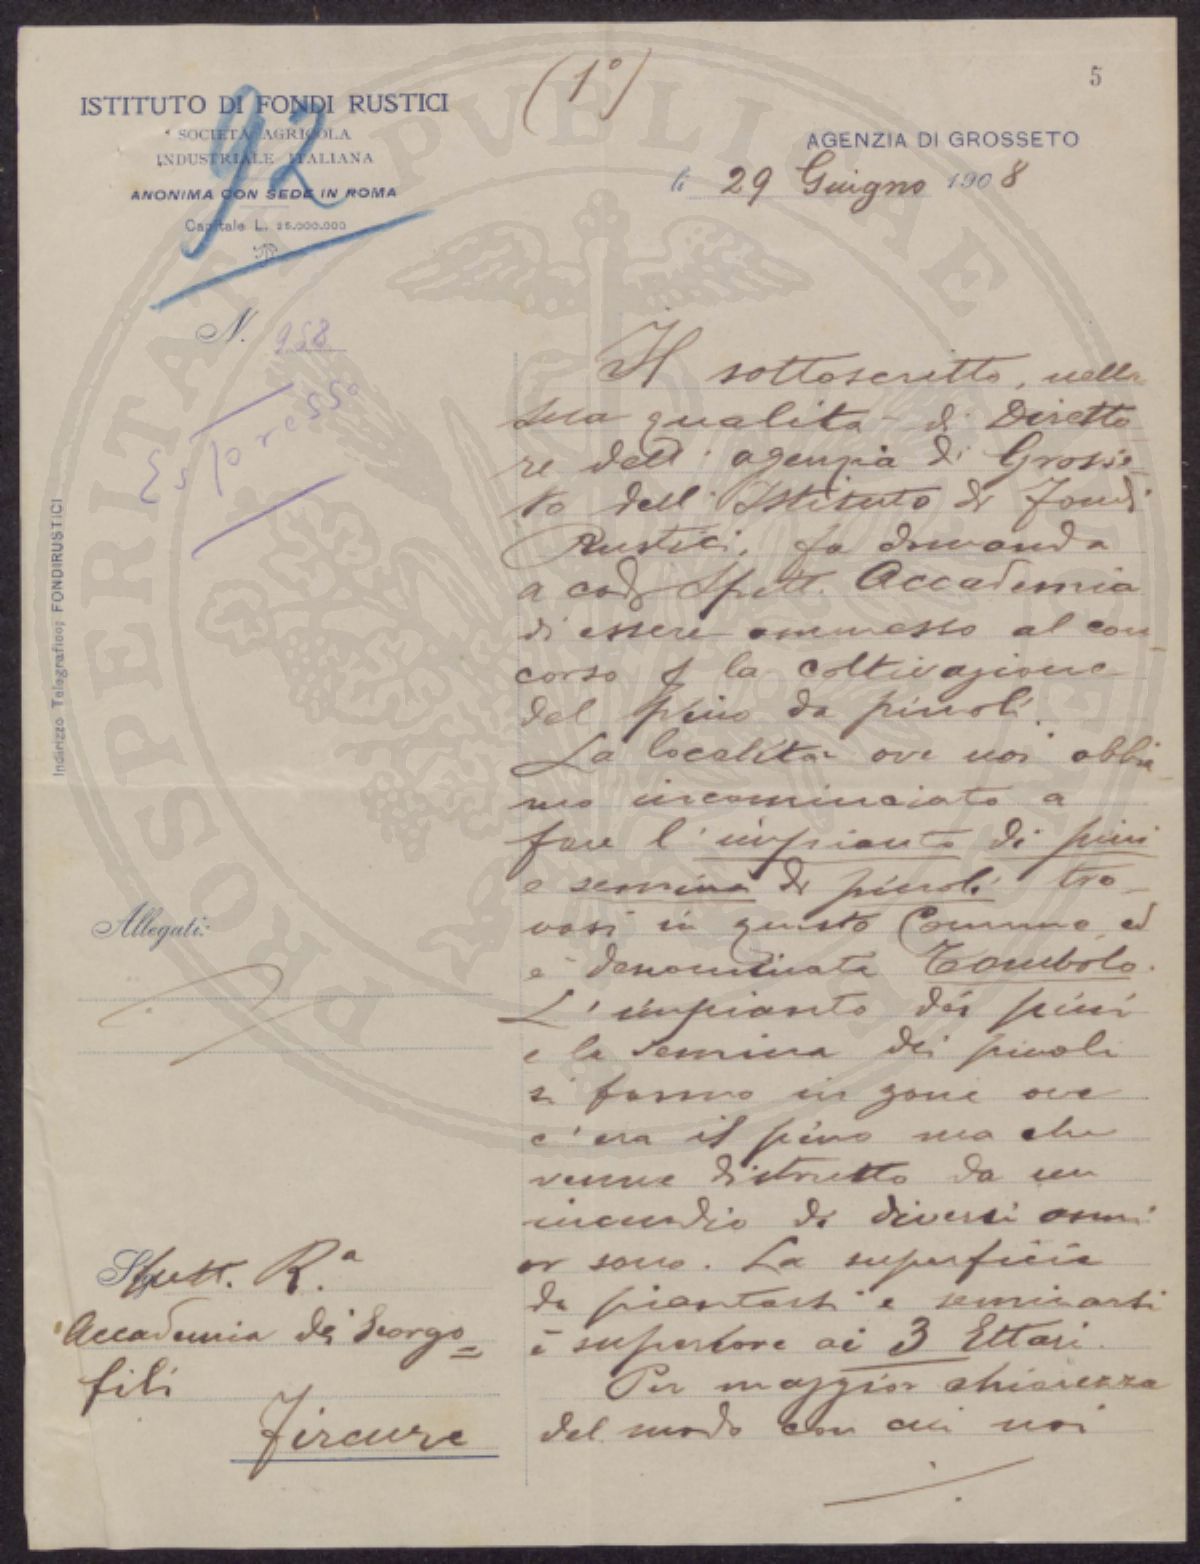 (1°)
5
ISTITUTO DI FONDI RUSTICI
SOCIETÀ AGRICOLA
INDUSTRIALE ITALIANA
ANONIMA CON SEDE IN ROMA
Capitale L. 25.000.000
92
AGENZIA DI GROSSETO
li 29 Giugno 1908
N. 958
Espresso
Indirizzo Telegrafico: FONDIRUSTICI
Il sottoscritto, nella
sua qualità di Diretto
re dell'agenzia di Grosse-
to dell'Istituto di Fondi
Rustici, fa domanda
a cod. Spett. Accademia
di essere ammesso al con-
corso p la coltivazione
del pino da pinoli.
La località ove noi abbia-
mo incominciato a
fare l'impianto di pini
e semina di pinoli tro-
vasi in questo Comune ed
è denominata Tombolo.
L'impianto dei pini
e la semina dei pinoli
si fanno in zone ove
c'era il pino ma che
venne distrutto da un
incendio di diversi anni
or sono. La superficie
da piantarsi e seminarsi
è superiore ai 3 Ettari.
Per maggior chiarezza
del modo con cui noi
Allegati:
Spett. R.a
Accademia dei Georgo=
fili
Firenze
PROSPERITATI PVBLICAE